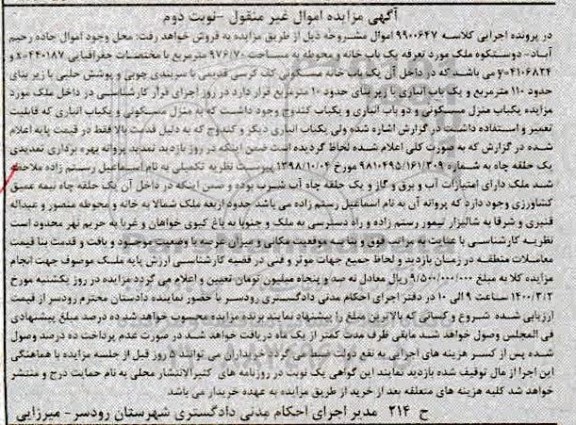 آگهی مزایده اموال غیر منقول -نوبت دوم
در پرونده اجرایی کلاسه ۹۹۰۰۶۴۷ اموال مشروحه ذیل از طریق مزایده به فروش خواهد رفت: محل وجود اموال جاده رحیم
آباد- دوستکوه ملک مورد تعرفه یک باب خانه و محوطه به مساحت ۹۷۶/۷۰ مترمربع با مختصات جغرافیایی x=۴۴۰۱۸۷ و
y=۴۱۰۶۸۲۴ می باشد که در داخل آن یک باب خانه مسکونی کف کرسی قدیمی با سربندی چوبی و پوشش حلبی با زیر بنای
حدود ۱۱۰ مترمربع و یک باب انباری با زیر بنای حدود ۱۰ مترمربع قرار دارد در روز اجرای قرار کارشناسی در داخل ملک مورد
مزایده یکباب منزل مسکونی و دو باب انباری و یکباب کندوج وجود داشت که به منزل مسکونی و یکباب انباری که قابلیت
تعمیر و استفاده داشت در گزارش اشاره شده ولی یکباب انباری دیگر و کندوج که به دلیل قدمت بالا فقط در قیمت پایه اعلام
شده در گزارش که به صورت کلی اعلام شده لحاظ گردیده است ضمن اینکه در روز بازدید تمدید پروانه بهره برداری تمدیدی
یک حلقه چاه به شماره ۹۸۱۰۴۹۵/۱۶۱/۳۰۹ مورخ ۱۳۹۸/۱۰/۰۴ پیوست نظریه تکمیلی به نام اسماعیل رستم زاده ملاحظه
شد ملک دارای امتیازات آب و برق و گاز و یک حلقه چاه آب شرب بوده و ضمن اینکه در داخل آن یک حلقه چاه نیمه عمیق
کشاورزی وجود دارد که پروانه آن به نام اسماعیل رستم زاده می باشد حدود اربعه ملک شمالا به خانه و محوطه منصور و عبداله
قنبری و شرقا به شالیزار تیمور رستم زاده و راه دسترسی به ملک و جنوبا به باغ کیوی خواهان و غربا به حریم نهر محدود است
نظریه کارشناسی با عنایت به مراتب فوق و بنا به موقعیت مکانی و میزان عرصه با وضعیت موجود و بافت و قدمت بنا قیمت
معاملات منطقه در زمان بازدید و لحاظ جمیع جهات موثر و فنی در قضیه کارشناسی ارزش پایه ملک موصوف جهت انجام
مزایده کلا به مبلغ ۹/۵۰۰/۰۰۰/۰۰۰ ریال معادل نه صد و پنجاه میلیون تومان تعیین و اعلام می گردد مزایده در روز یکشنبه مورخ
۱۴۰۰/۳/۲ ساعت ۹ الی ۱۰ در دفتر اجرای احکام مدنی دادگستری رودسر با حضور نماینده دادستان محترم رودسر از قیمت
ارزیابی شده شروع و کسانی که بالاترین مبلغ را پیشنهاد نمایند برنده مزایده محسوب خواهد شد ده درصد مبلغ پیشنهادی
فی المجلس وصول خواهد شد مابقی ظرف مدت کمتر از یک ماه دریافت خواهد شد در صورت عدم پرداخت ده درصد وصول
شده پس از کسر هزینه های اجرایی به نفع دولت ضبط می گردد خریداران می توانند ۵ روز قبل از جلسه مزایده با هماهنگی
این اجرا از مال توقیف شده بازدید نمایند این گواهی یک نوبت در روزنامه های کثیرالانتشار محلی به نام حمایت درج و منتشر
خواهد شد کلیه هزینه های متعلقه بعد از خرید از طریق مزایده به عهده خریدار می باشد
ح ۲۱۴ مدیر اجرای احکام مدنی دادگستری شهرستان رودسر- میرزایی